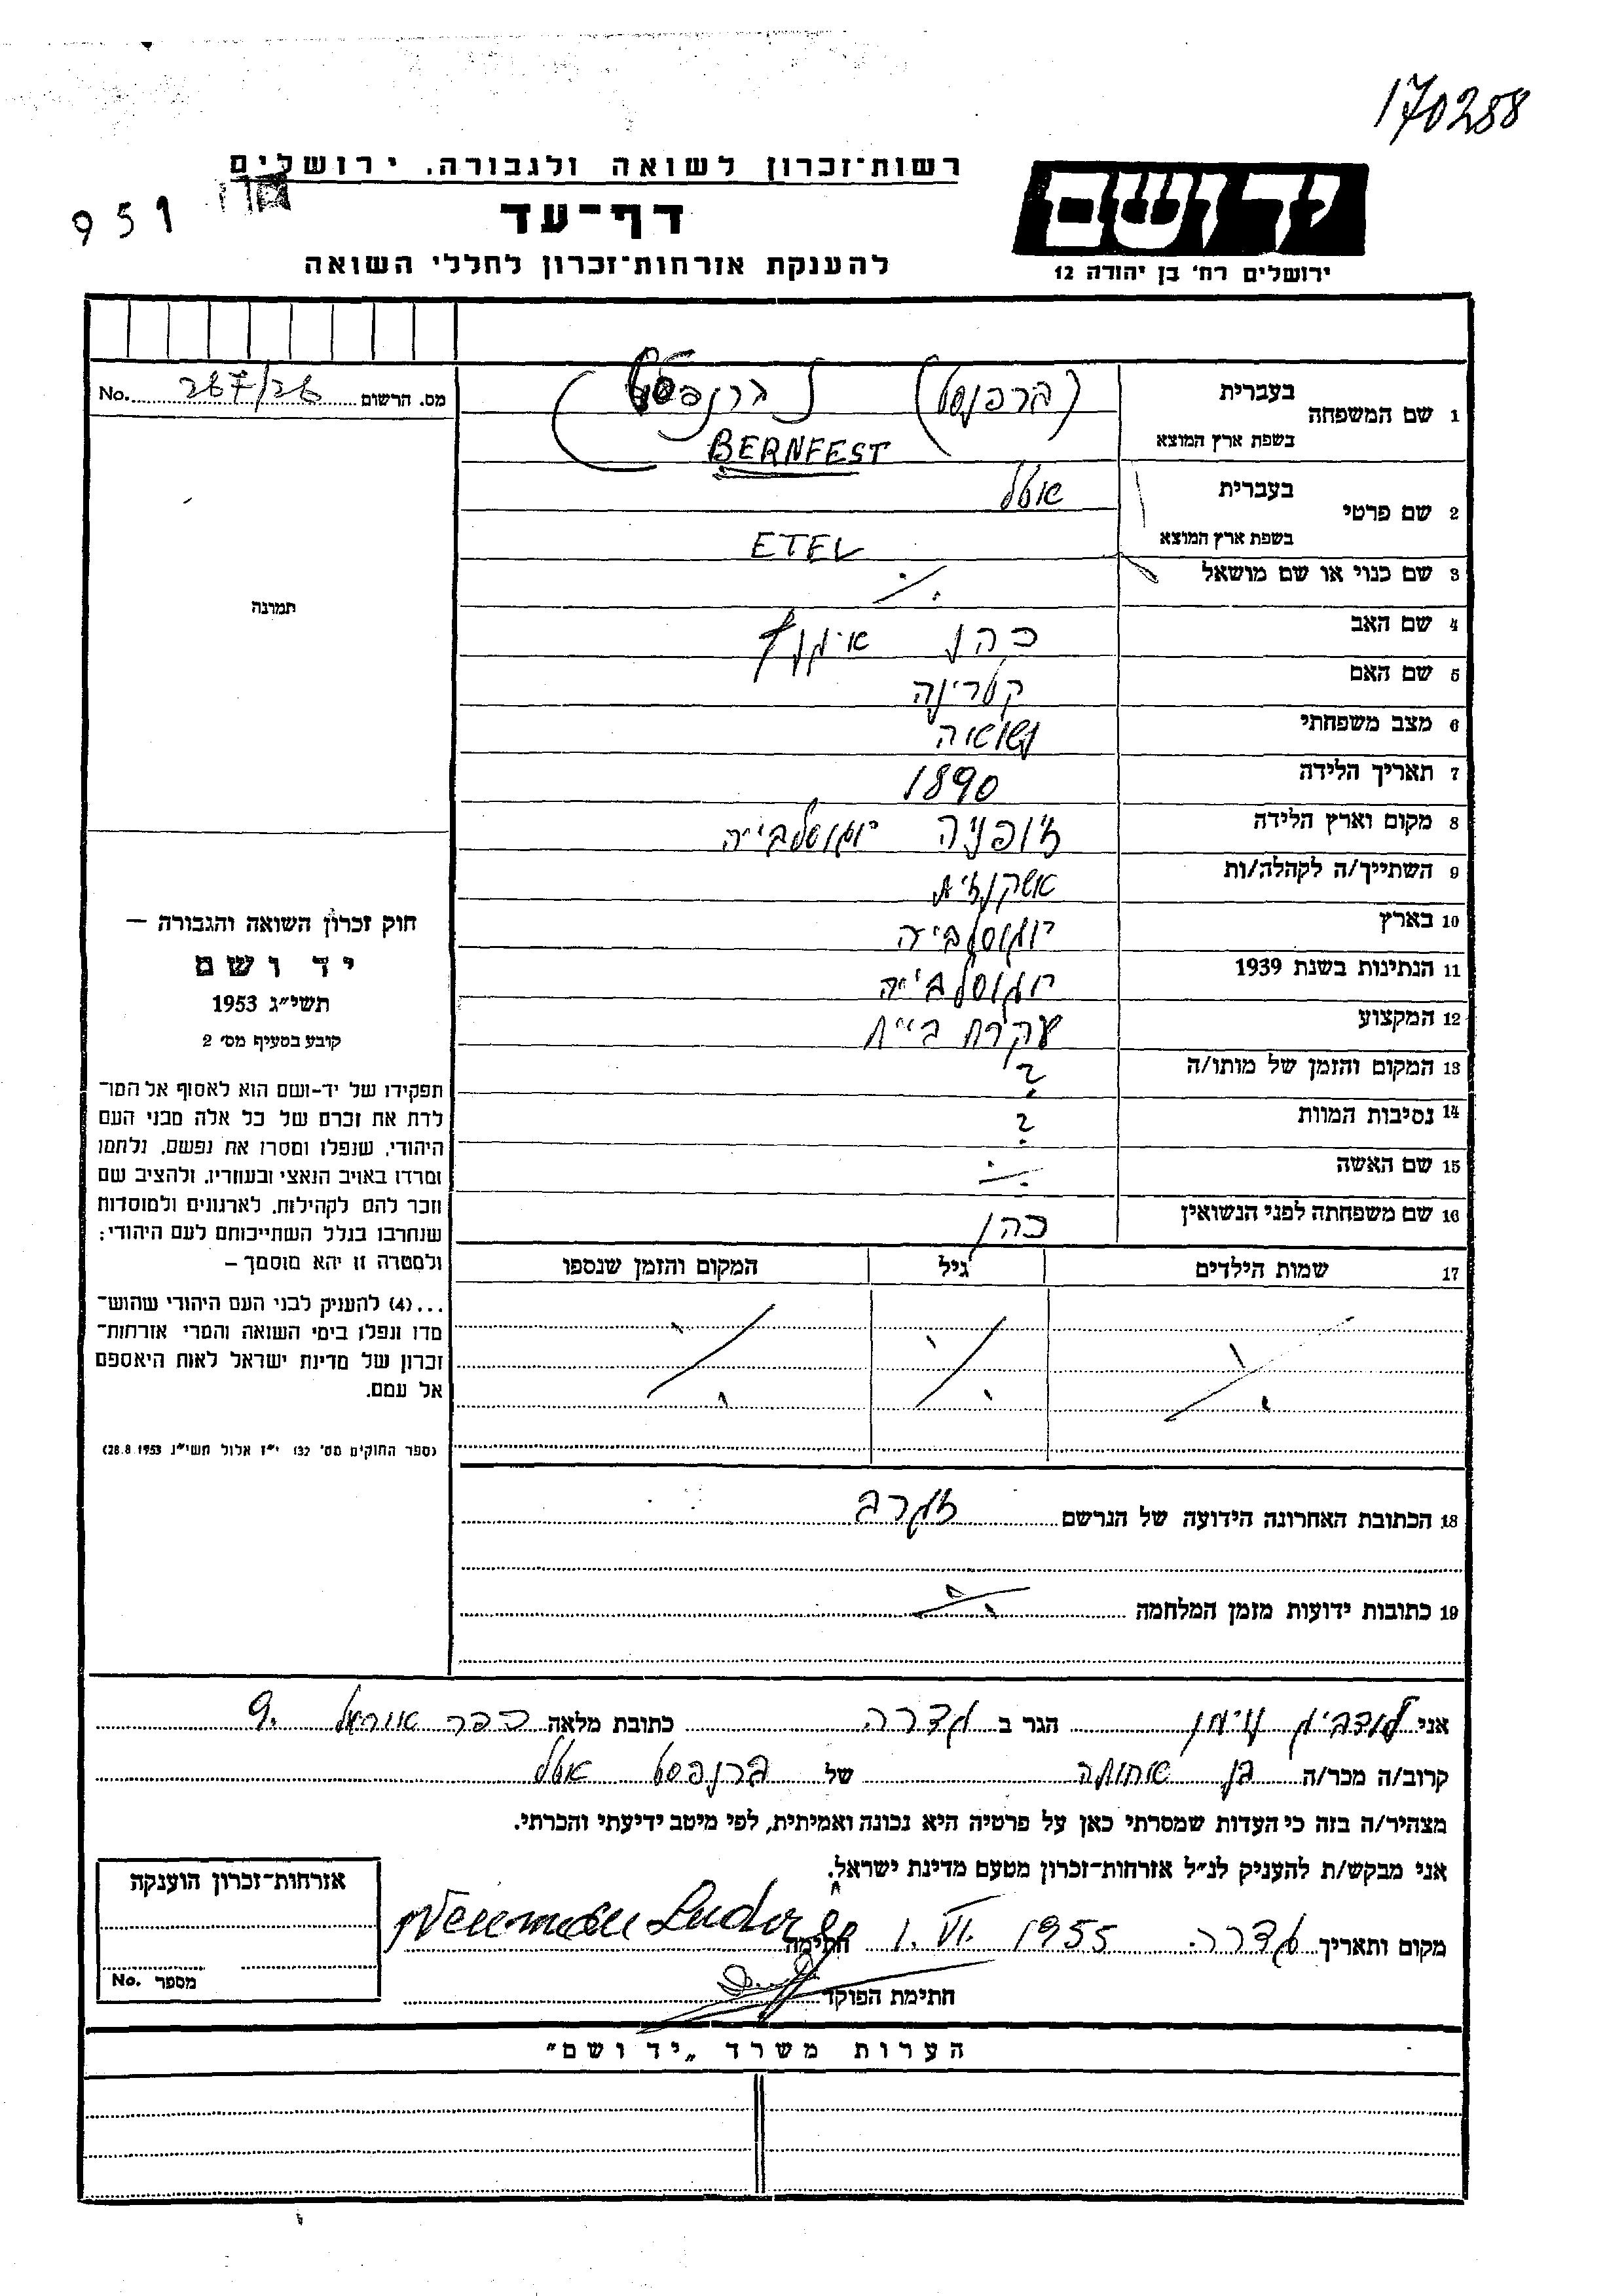 170288
רשות־זכרון לשואה ולגבורה, ירושלים
959
דף־עד
להענקת אזרחות־זכרון לחללי השואה
יד ושם
ירושלים רח' בן יהודה 12
מס. הרשום 267/26 No.
1 שם המשפחה בעברית (ברפנסט) ברנפסט
בשפת ארץ המוצא BERNFEST
2 שם פרטי בעברית אטל
בשפת ארץ המוצא ETEL
3 שם כנוי או שם מושאל ./.
תמונה
4 שם האב כהן איגנץ
5 שם האם קטרינה
6 מצב משפחתי נשואה
7 תאריך הלידה 1890
8 מקום וארץ הלידה יוגוסלביה
9 השתייך/ה לקהלה/ות אשקנזית
10 בארץ יוגוסלביה
11 הנתינות בשנת 1939 יוגוסלביה
12 המקצוע עקרת בית
13 המקום והזמן של מותו/ה ?
14 נסיבות המוות ?
15 שם האשה ./.
16 שם משפחתה לפני הנשואין כהן
17 שמות הילדים גיל המקום והזמן שנספו
./. ./. ./.
חוק זכרון השואה והגבורה –
יד ושם
תשי״ג 1953
קובע בסעיף מס' 2
תפקידו של יד-ושם הוא לאסוף אל המו־
לדת את זכרם של כל אלה מבני העם
היהודי, שנפלו ומסרו את נפשם, נלחמו
ומרדו באויב הנאצי ובעוזריו, ולהציב שם
וזכר להם לקהילות, לארגונים ולמוסדות
שנחרבו בגלל השתייכותם לעם היהודי;
ולמטרה זו יהא מוסמך –
...(4) להעניק לבני העם היהודי שהוש־
מדו ונפלו בימי השואה והמרי אזרחות־
זכרון של מדינת ישראל לאות היאספם
אל עמם.
(ספר החוקים מס' 132 י״ז אלול תשי״ג 28.8.1953)
18 הכתובת האחרונה הידועה של הנרשם זגרב
19 כתובות ידועות מזמן המלחמה ./.
אני לודביג נוימן הגר ב גדרה כתובת מלאה כפר אוריאל 9.
קרוב/ה מכר/ה בן אחותה של ברנפסט אטל
מצהיר/ה בזה כי העדות שמסרתי כאן על פרטיה היא נכונה ואמיתית, לפי מיטב ידיעתי והכרתי.
אני מבקש/ת להעניק לנ״ל אזרחות-זכרון מטעם מדינת ישראל.
מקום ותאריך גדרה. 1. VI. 1955 חתימה Neumann Ludvig
חתימת הפוקד
אזרחות-זכרון הוענקה
מספר No.
הערות משרד „יד ושם״